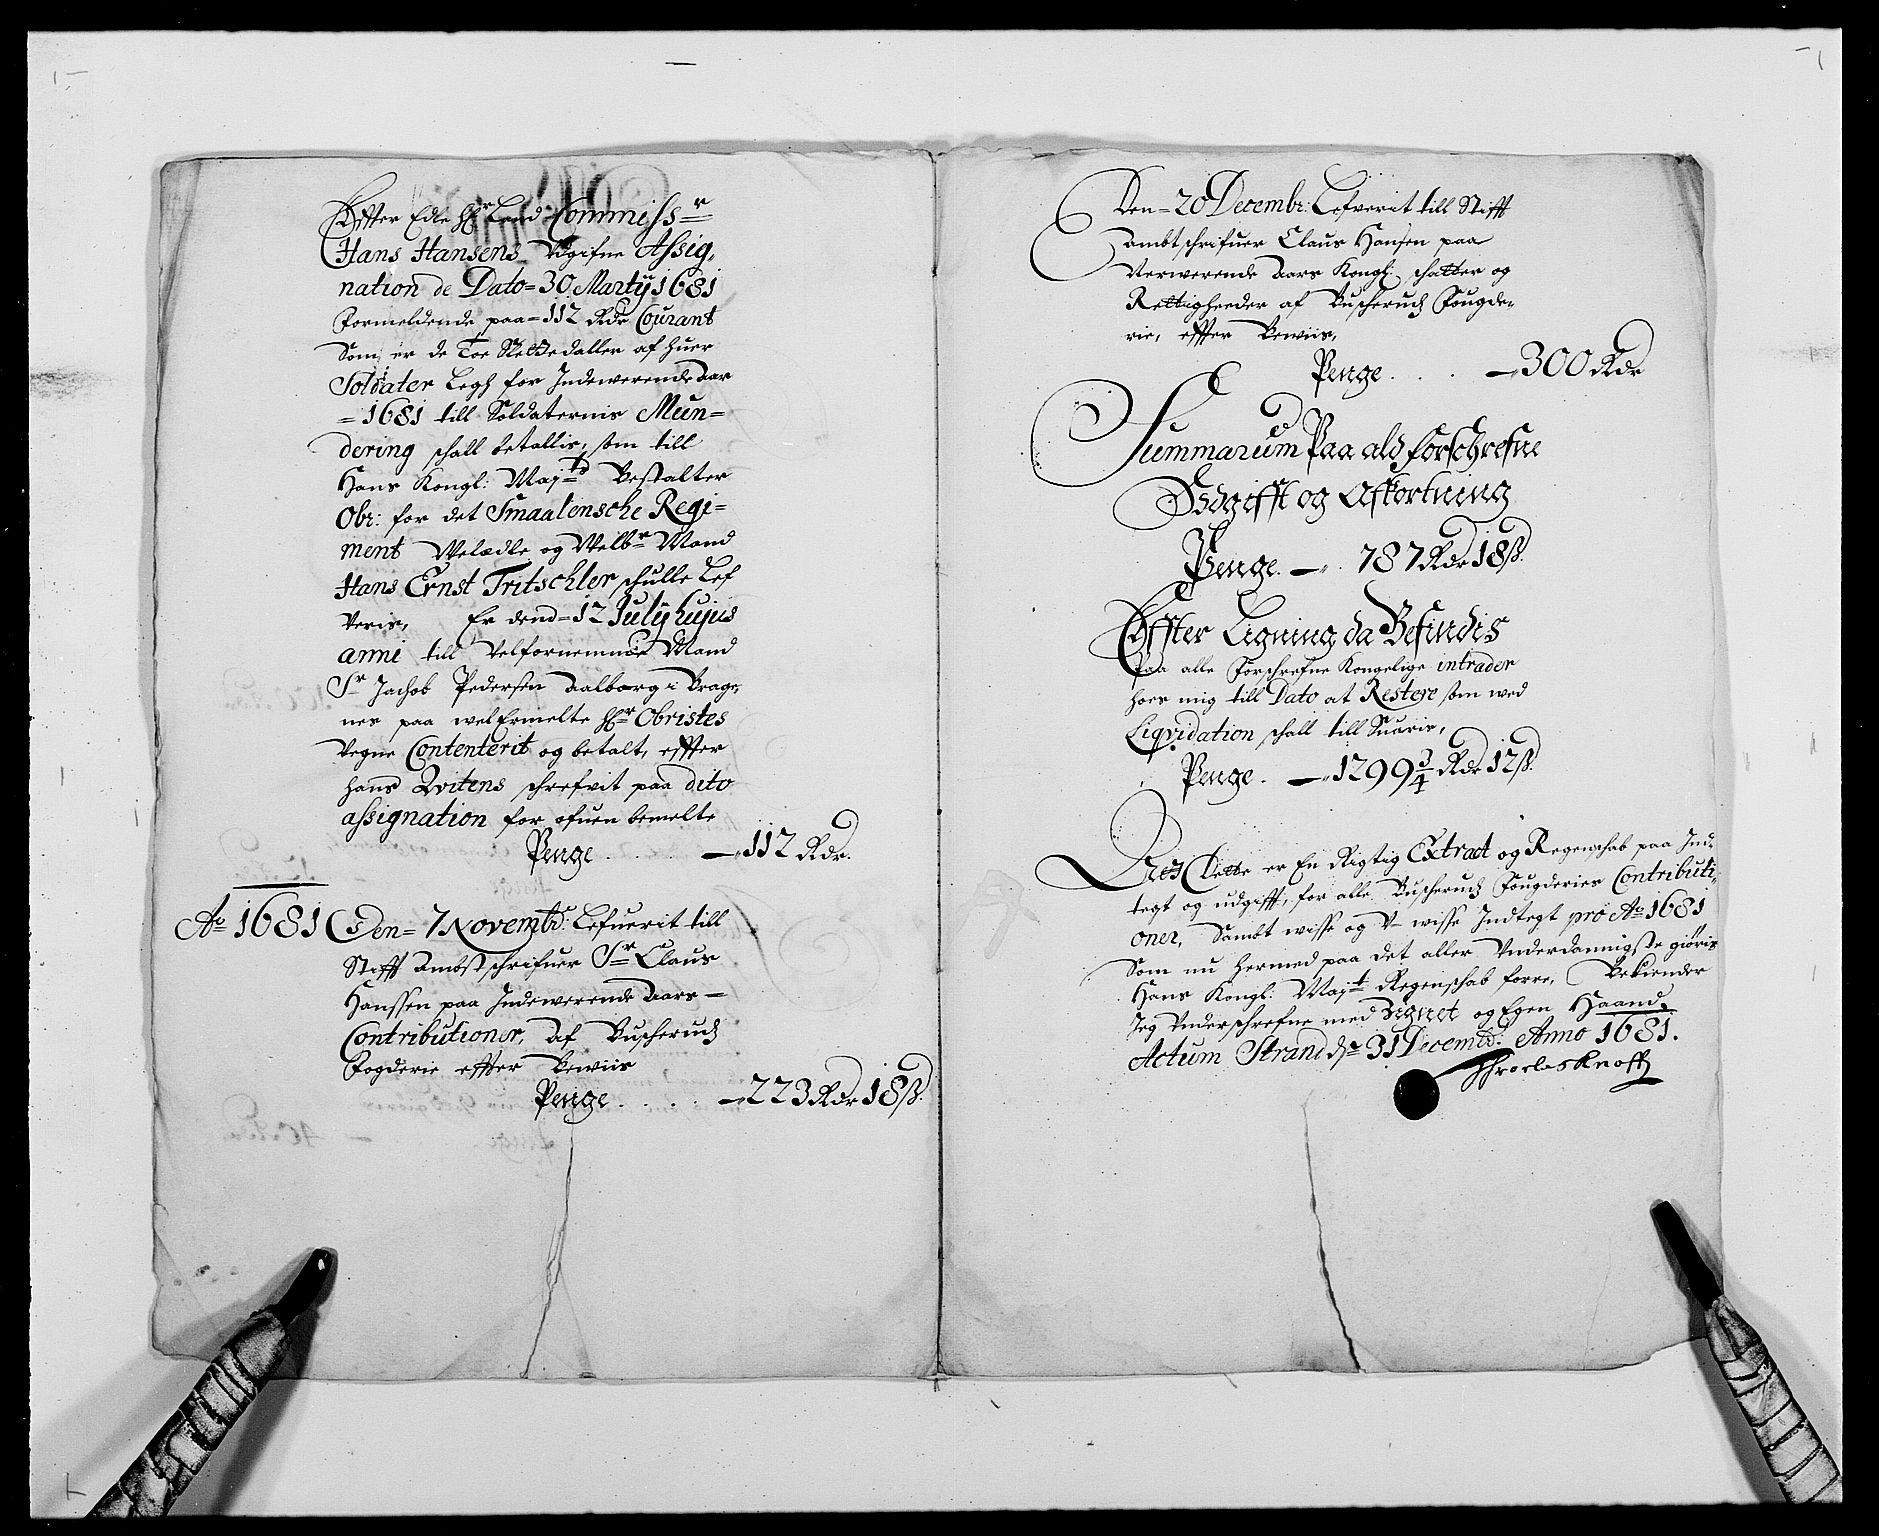 Effter Edle Hr: Land Commissr
Hans Hansens Udgifne Assig,
nation de Dato = 30 Martij 1681
Formeldende paa = 112 Rdr Courant
Som er de Toe Slettedaller af huer
Soldater Legh for Indewerende Aar
= 1681 till Soldaternis Mun=
dering schall betallis, som till
Hans Kongl: Majts Bestalter
Obr: for det Smaalensche Regi=
ment Welædle og Welbr Mand
Hans Ernst Tritschler schulle Lef
veris, Er dend = 12 July hujus
anni till Velfornemme Mand
Sr Jachob Pedersen Aalborg i Brage,
nes paa welErmelte Hr Obristes
Vegne Contenterit og betalt, effter
hans Qvitens schrefvit paa dito
assignation for ofuen bemelte
Penge . . . — 112 Rdr.
Ao 1681 Den = 7 Novembr: Lefuerit till
Stifft Ambtschrifuer Sr Claus
Hanssen paa Indewerende Aars —
Contributioner, Af Buscheruds
Fogderie effter Bewiis
Penge . . . — 223 Rdr 18 ß.
Den = 20 Decembr: Lefverit till Stifft
Ambtschrifuer Claus Hansen paa
Verwerende Aars Kongl: schatter og
Rettigheeder af Buscheruds Fougde=
rie, effter Bewiis,
Penge . . . — 300 Rdr
Summarum Paa ald forschrefne
Udgifft og Afkortning
Penge — 787 Rdr 18 ß.
Effter Ligning da Befindis
Paa alle Forschrefne Kongelige intrader
hoes mig till Dato at Restere som wed
Liqvidation schall till Suaris,
Penge. — 1299 3/4 Rdr 12 ß.
Dette er En Rigtig Extract og Regenschab paa Ind=
tegt og udgifft, for alle Buscheruds Fougderies Contributi,
oner, Sambt wisse og U- wisse Indtegt pro Ao 1681
Som nu hermed paa det aller Underdannigste giöris
Hans Kongl: Majt Regenschab forre, Bekiender
Jeg Underschrefne med Zignet og Egen Haand,
Actum Strand dn 31 Decembr: Anno 1681.
Knoff